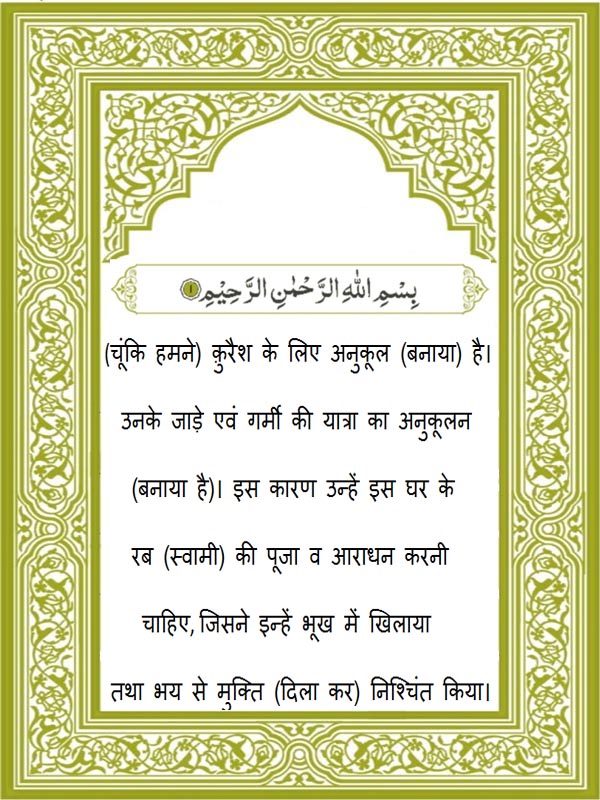 بِسْمِ اللّٰهِ الرَّحْمٰنِ الرَّحِيْمِ ١
(चूंकि हमने) कुरैश के लिए अनुकूल (बनाया) है।
उनके जाड़े एवं गर्मी की यात्रा का अनुकूलन
(बनाया है)। इस कारण उन्हें इस घर के
रब (स्वामी) की पूजा व आराधन करनी
चाहिए, जिसने इन्हें भूख में खिलाया
तथा भय से मुक्ति (दिला कर) निश्चिंत किया।